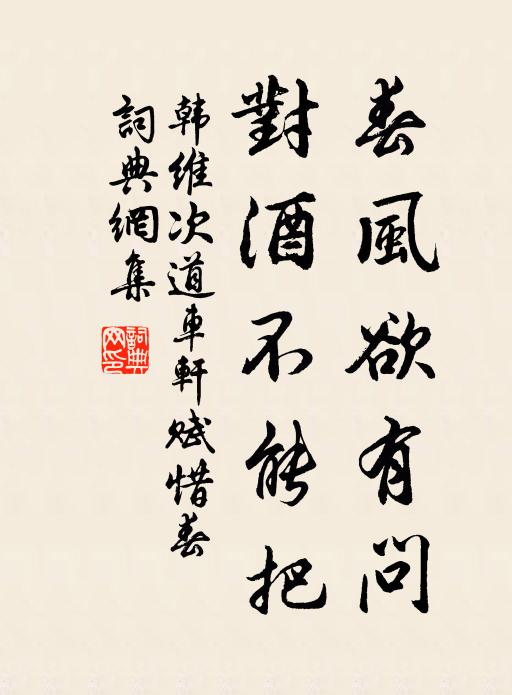 春風欲有問
對酒不能把
韩維次道車軒赋惜春
詞典網集
詞典
网印